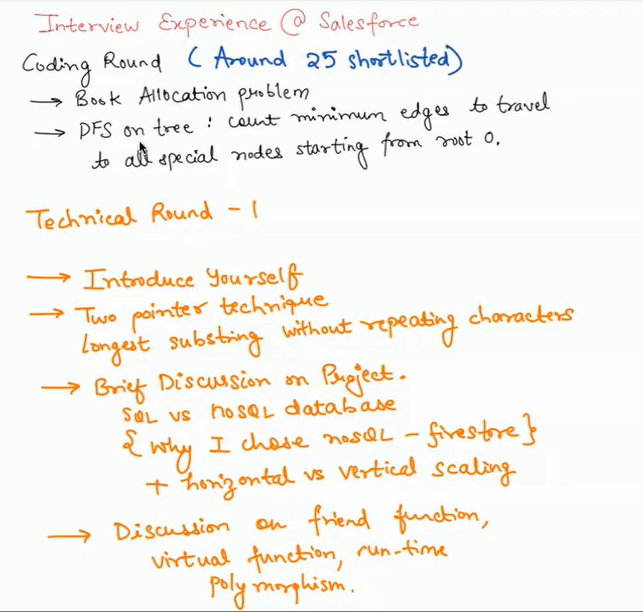 Interview Experience @ Salesforce
Coding Round (Around 25 shortlisted)
→ Book Allocation problem
→ DFS on tree : count minimum edges to travel
to all special nodes starting from root 0.
Technical Round - 1
→ Introduce Yourself
→ Two pointer technique
longest substring without repeating characters
→ Brief Discussion on Project.
SQL vs noSQL database
{ why I chose noSQL - firestore }
+ horizontal vs vertical scaling
→ Discussion on friend function,
virtual function, run-time
polymorphism.